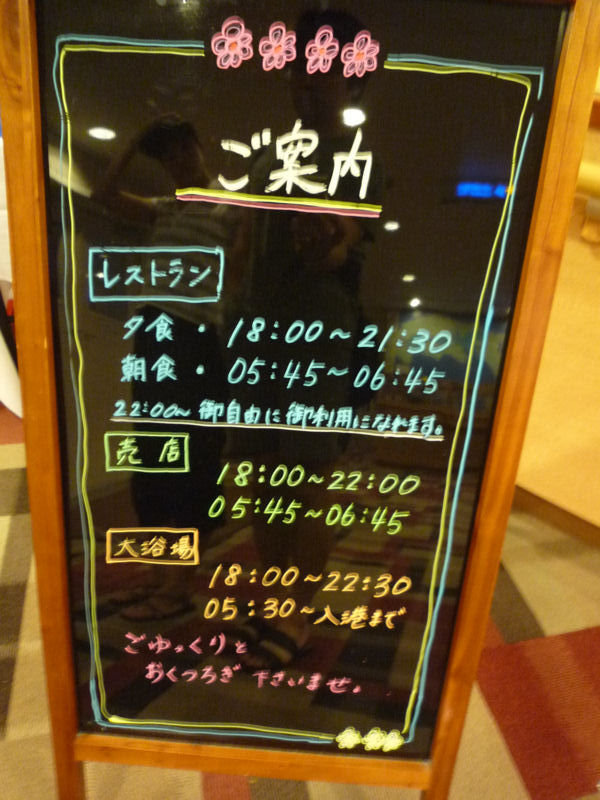 ご案内
レストラン
夕食・18:00~21:30
朝食・05:45~06:45
22:00~御自由に御利用になれます。
売店
18:00~22:00
05:45~06:45
大浴場
18:00~22:30
05:30~入港まで
ごゆっくりと
おくつろぎ下さいませ。